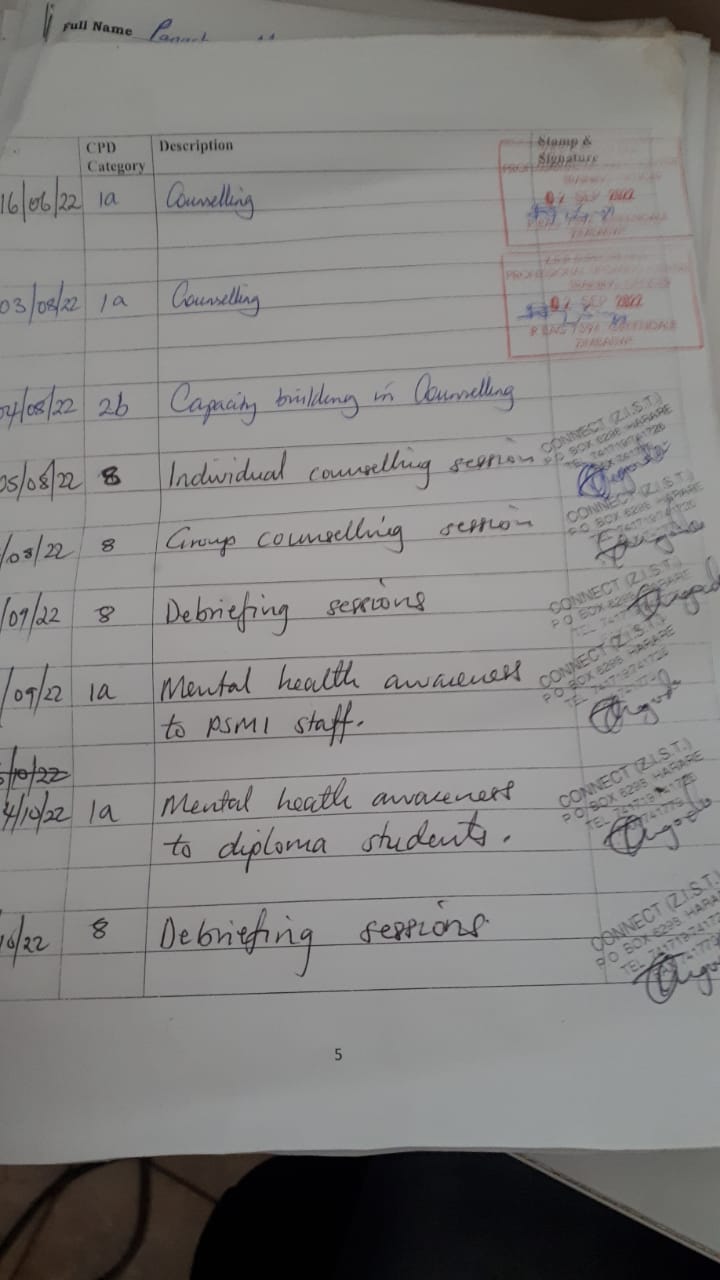 Full Name
CPD Category Description Stamp & Signature
16/06/22 1a Counselling
02 SEP 2022
03/08/22 1a Counselling
02 SEP 2022
04/08/22 2b Capacity building in Counselling
05/08/22 8 Individual counselling session
CONNECT (Z.I.S.T.)
P O BOX 6298 HARARE
/08/22 8 Group counselling session
CONNECT (Z.I.S.T.)
P O BOX 6298 HARARE
/09/22 8 Debriefing sessions
CONNECT (Z.I.S.T.)
P O BOX 6298 HARARE
/09/22 1a Mental health awareness
to PSMI staff.
CONNECT (Z.I.S.T.)
P O BOX 6298 HARARE
/10/22
4/10/22 1a Mental heath awareness
to diploma students.
CONNECT (Z.I.S.T.)
P O BOX 6298 HARARE
/22 8 Debriefing sessions
CONNECT (Z.I.S.T.)
P O BOX 6298 HARA
5